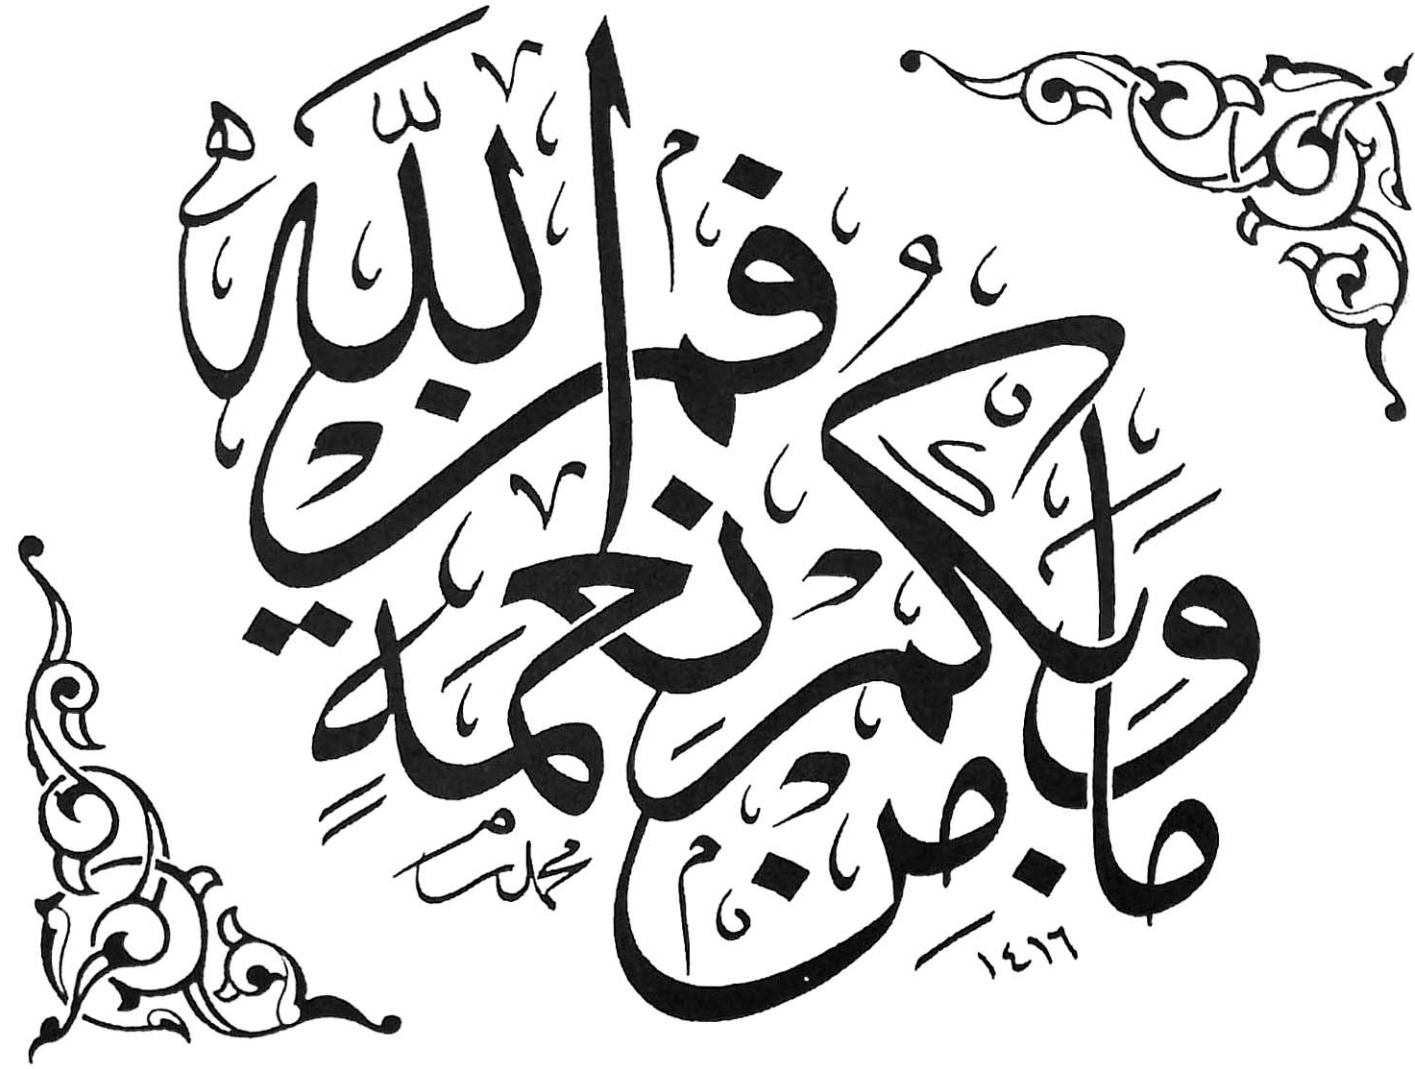 وَمَا بِكُم مِّن نِّعْمَةٍ فَمِنَ اللَّهِ
محمد
١٤١٦